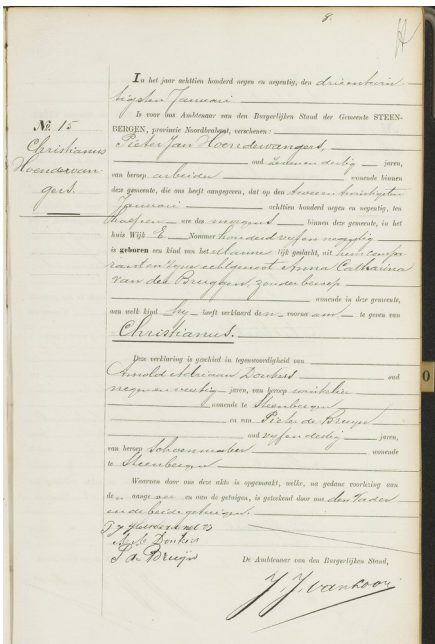 8.
In het jaar achttien honderd negen en negentig, den drieentwin-
tigsten Januari
is voor ons Ambtenaar van den Burgerlijken Stand der Gemeente STEEN-
BERGEN, provincie Noordbrabant, verschenen:
No. 15
Christianus
Hoendervan
gers.
Pieter Jan Hoendervangers,
oud jaren,
van beroep arbeider wonende binnen
deze gemeente, die ons heeft aangegeven, dat op den tweeentwintigsten
Januari achttien honderd negen en negentig, ten
twaalf ure des morgens binnen deze gemeente, in het
huis Wijk E Nummer honderd vijf en negentig
is geboren een kind van het manne lijk geslacht, uit hem compa-
rant en zijne echtgenoot Anna Catharina
van der Bruggen, zonder beroep
wonende in deze gemeente,
aan welk kind hij heeft verklaard den voornaam te geven van
Christianus.
Deze verklaring is geschied in tegenwoordigheid van
Arnold Adriaan Donkers oud
negen en veertig jaren, van beroep winkelier
wonende te Steenbergen
en van Pieter de Bruijn
oud vijf en dertig jaren,
van beroep Schoenmaker wonende
te Steenbergen
Waarvan door ons deze akte is opgemaakt, welke, na gedane voorlezing aan
de aangever en aan de getuigen, is geteekend door ons den Vader
en de beide getuigen.
A. A. Donkers
P de Bruijn
De Ambtenaar van den Burgerlijken Stand,
J. J. van Loon